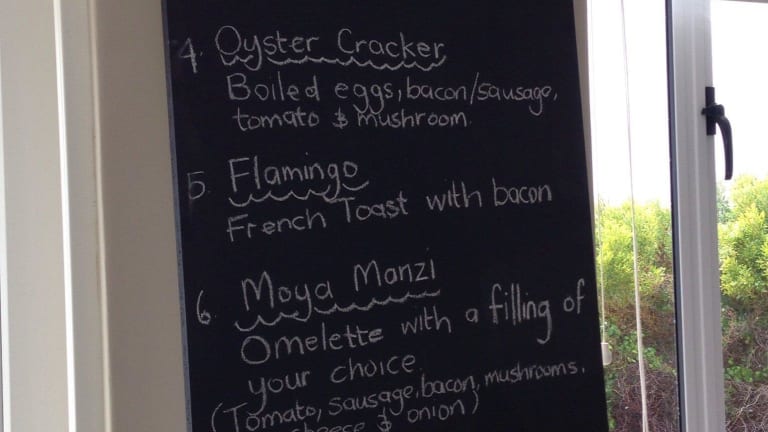 4. Oyster Cracker
Boiled eggs, bacon/sausage,
tomato & mushroom.
5. Flamingo
French Toast with bacon
6. Moya Manzi
Omelette with a filling of
your choice.
(Tomato, sausage, bacon, mushrooms,
cheese & onion)